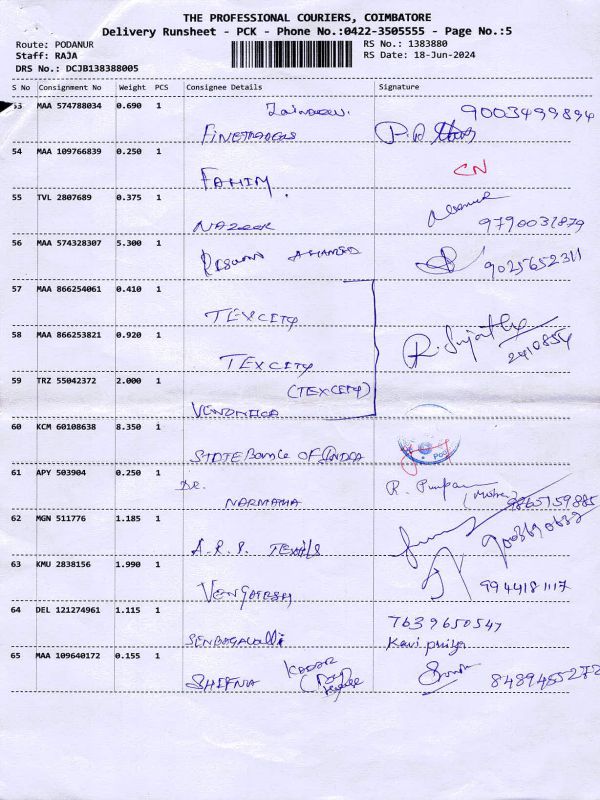 THE PROFESSIONAL COURIERS, COIMBATORE
Delivery Runsheet - PCK - Phone No.:0422-3505555 - Page No.:5
Route: PODANUR
RS No.: 1383880
Staff: RAJA
RS Date: 18-Jun-2024
DRS No.: DCJB138388005
S No Consignment No Weight PCS Consignee Details Signature
53 MAA 574788034 0.690 1 9003499894
54 MAA 109766839 0.250 1 CN
FAHIM.
55 TVL 2807689 0.375 1
NAZEER 9790031879
56 MAA 574328307 5.300 1
AHAMED 9025652311
57 MAA 866254061 0.410 1
TEXCITY
58 MAA 866253821 0.920 1 R. Sujatha
TEXCITY 2410854
59 TRZ 55042372 2.000 1 (TEXCITY)
VERONICA
60 KCM 60108638 8.350 1
STATE Bank OF INDIA
61 APY 503904 0.250 1 DR.
NARMATHA 9865759885
62 MGN 511776 1.185 1
A.R.S. TEXTILS
63 KMU 2838156 1.990 1
VENGATESH 9944181117
64 DEL 121274961 1.115 1 7639650547
SENBAGAVALLI Kavi priya
65 MAA 109640172 0.155 1 KADAR
SHIFNA